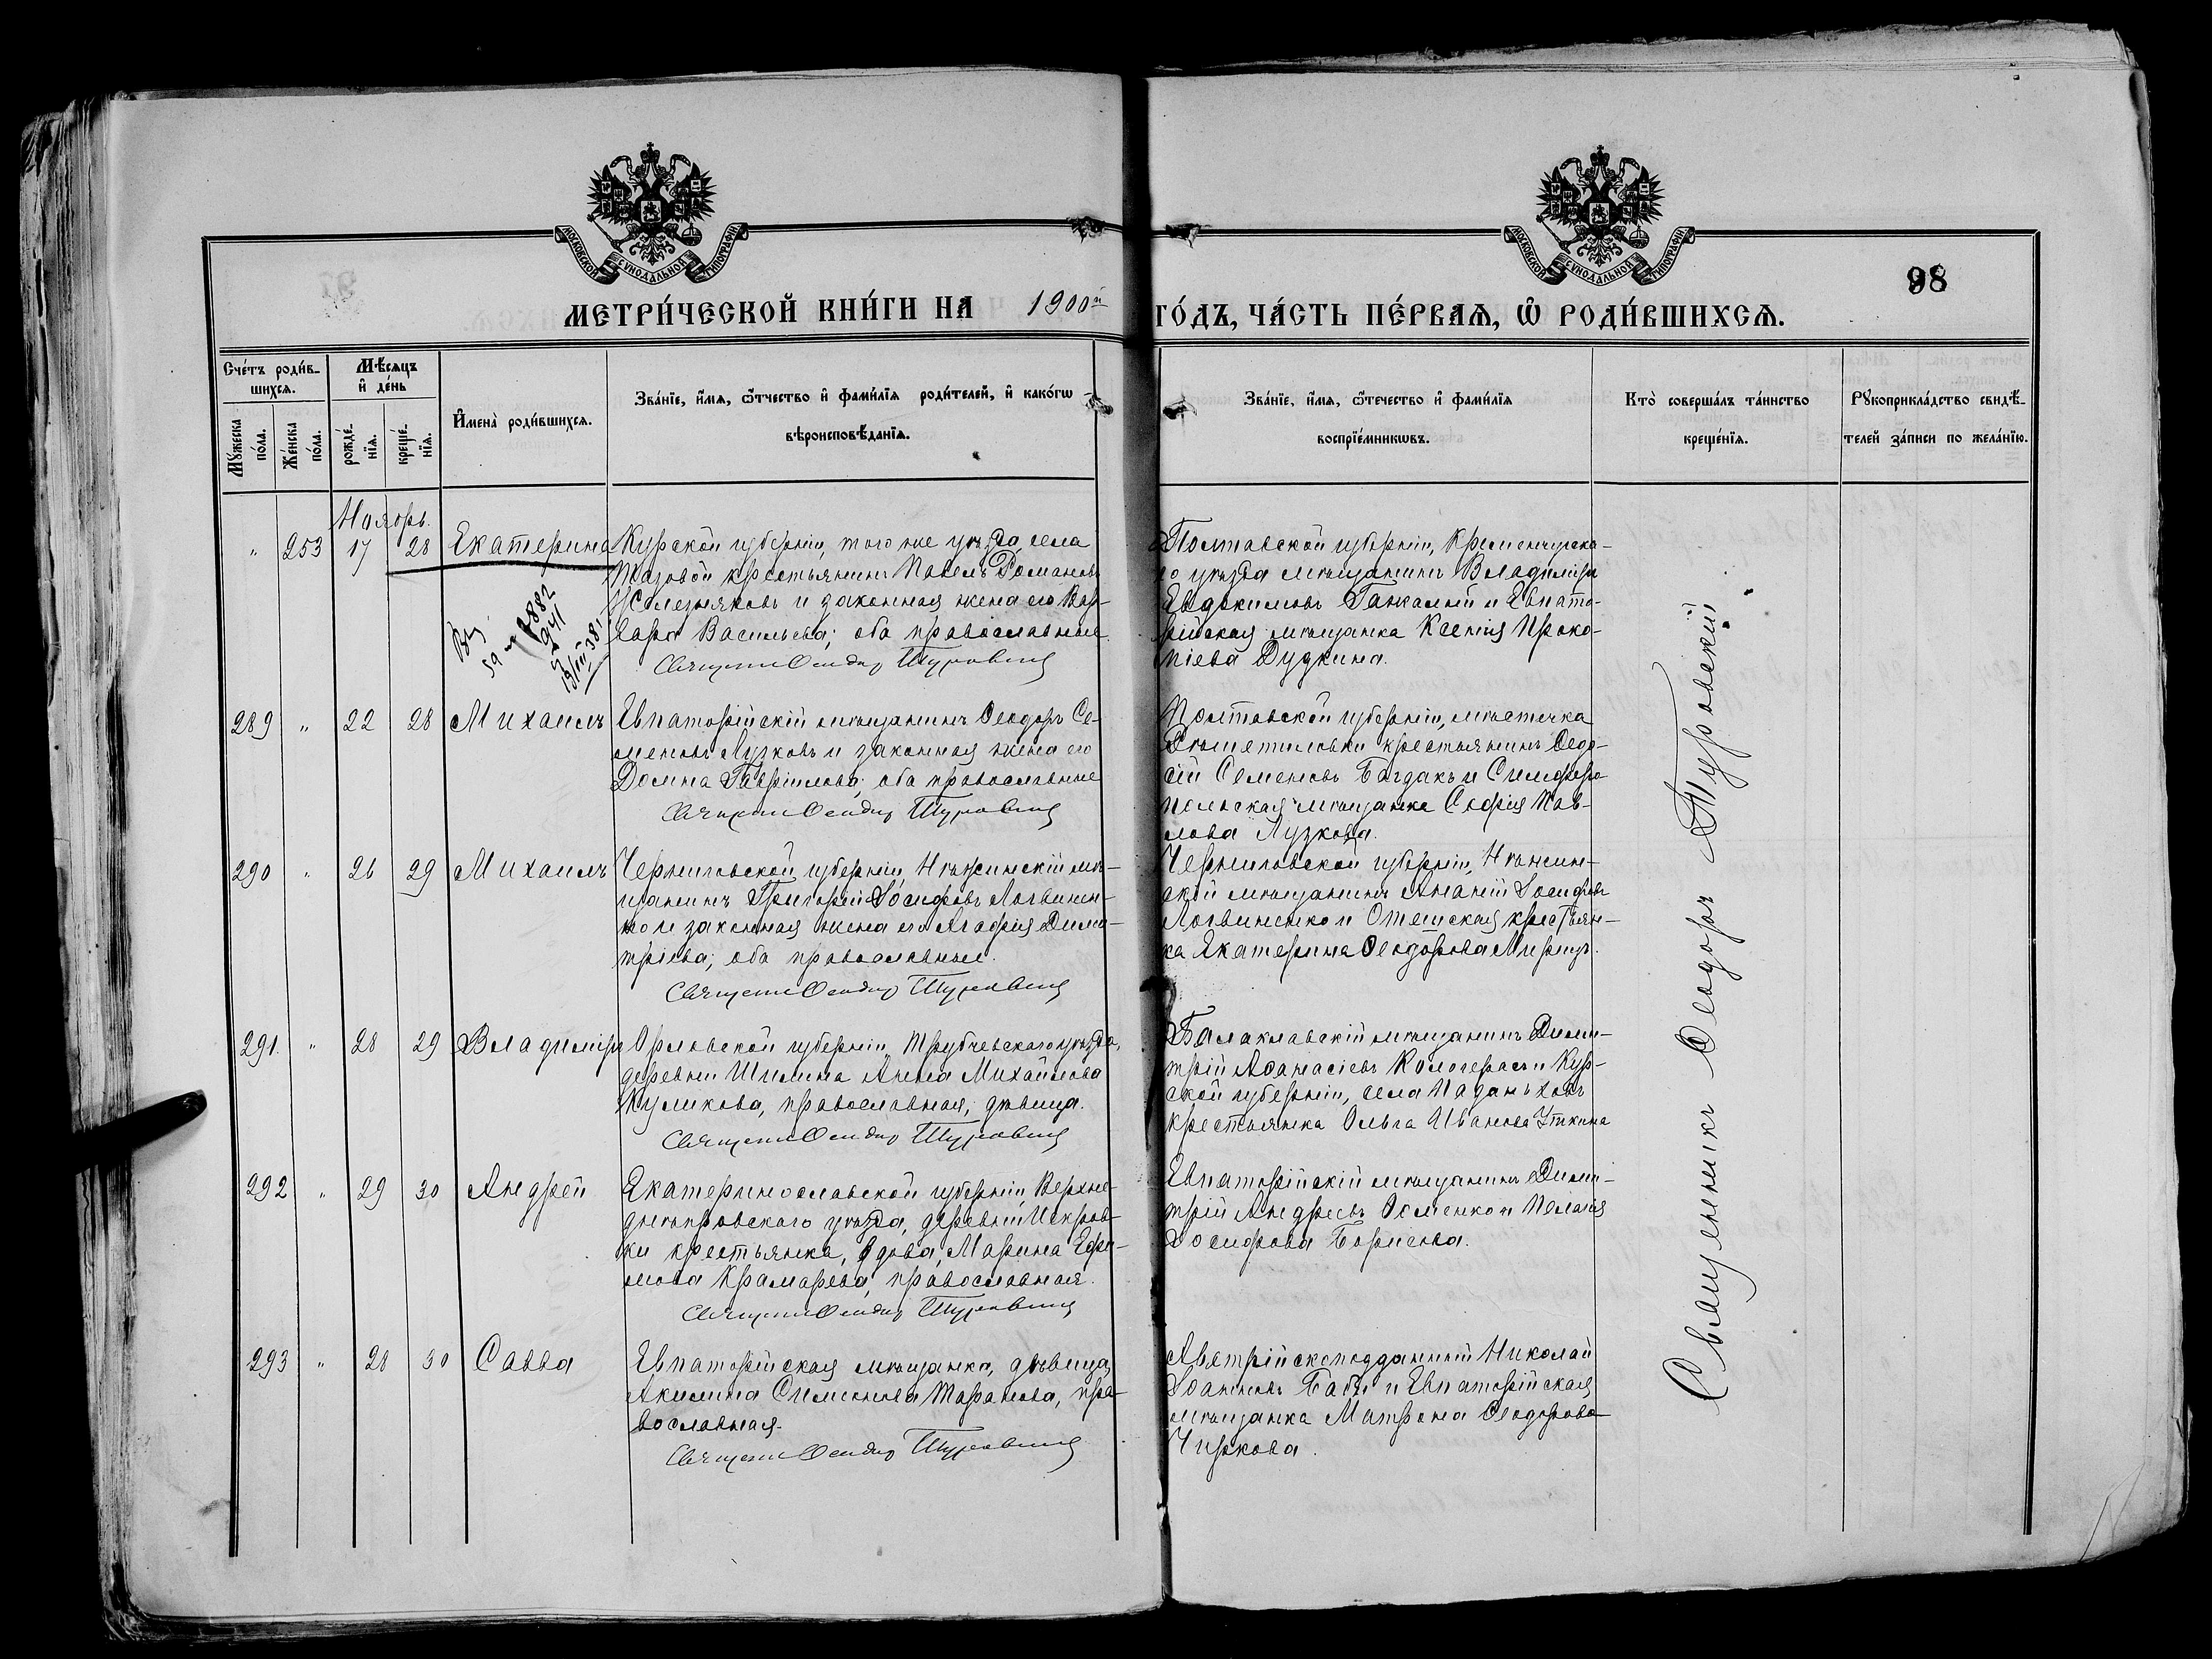 МОСКОВСКОЙ СѴНОДАЛЬНОЙ ТИПОГРАФІИ
МОСКОВСКОЙ СѴНОДАЛЬНОЙ ТИПОГРАФІИ
98
МЕТРИ́ЧЕСКОЙ КНИ́ГИ НА 1900й ГО́ДЪ, ЧА́СТЬ ПЕ́РВАѦ, Ѡ҆ РОДИ́ВШИХСѦ.
Сче́тъ роди́в-
шихсѧ.
Мꙋ́жеска
по́ла.
Же́нска
по́ла.
Мѣ́сѧцъ
и҆ де́нь
рожде́-
нїѧ.
креще́-
нїѧ.
И҆мена̀ роди́вшихсѧ.
Зва́нїе, и҆́мѧ, ѻ҆́тчество и҆ фами́лїѧ роди́телей, и҆ како́гѡ
вѣроисповѣ́данїѧ.
Зва́нїе, и҆́мѧ, ѻ҆́течество и҆ фами́лїѧ
воспрїе́мникѡвъ.
Кто̀ соверша́лъ та́инство
креще́нїѧ.
Рꙋкоприкла́дство свидѣ́-
телей за́писи по жела́нїю.
Ноябрь.
" 253 17 28 Екатерина
Курской губерніи, того же уѣзда, села
Тазовой крестьянинъ Павелъ Романовъ
Железняковъ и законная жена его Вар-
вара Васильева; оба православные
Священ Ѳеодор Туровскій
Полтавской губерніи, Кременчугска-
го уѣзда мѣщанинъ Владиміръ
Евдокимовъ Ганжалый и Евпато-
рійская мѣщанка Ксенія Проко-
піева Дудкина.
289 " 22 28 Михаилъ
Евпаторійскій мѣщанинъ Ѳеодоръ Се-
меновъ Лузковъ и законная жена его
Домна Гавріилова; оба православные
Священ Ѳеодор Туровскій
Полтавской губерніи, мѣстечка
Рѣшетиловки крестьянинъ Ѳеодо-
сій Семеновъ Багдакъ и Симферо
польская мѣщанка Софія Пав-
лова Лузкова.
290 " 26 29 Михаилъ
Черниговской губерніи, Нѣжинскій мѣ-
щанинъ Григорій Іосифовъ Логвинен-
ко и законная жена его Агафія Дими-
тріева; оба православные.
Священ Ѳеодор Туровскій
Черниговской губерніи, Нѣжин-
ской мѣщанинъ Ананій Іосифовъ
Логвиненко и крестьян-
ка Екатерина Ѳеодорова
291. " 28 29 Владиміръ
Орловской губерніи, Трубчевскаго уѣзда,
деревни Шилина Анна Михайлова
Куликова, православная, дѣвица.
Священ Ѳеодор Туровскій
Балаклавскій мѣщанинъ Дими-
трій Аѳанасіевъ и Кур-
ской губерніи, села
крестьянка Ольга Иванова Уткина
292 " 29 30 Андрей
Екатеринославской губерніи, Верхне-
днѣпровскаго уѣзда, деревни Искров-
ки крестьянка, вдова, Марина Ефи-
мова Крамарева, православная.
Священ Ѳеодор Туровскій
Евпаторійскій мѣщанинъ Дими-
трій Андреевъ и Пелагія
Іосифова Борисова.
293 " 28 30 Савва
Евпаторійская мѣщанка, дѣвица
Акилина Симеонова Таранова, пра-
вославная.
Священ Ѳеодор Туровскій
Австрійскоподданный Николай
Іоанновъ и Евпаторійская
мѣщанка Матрона Ѳеодорова
Чиркова.
Священникъ Ѳеодоръ Туровскій